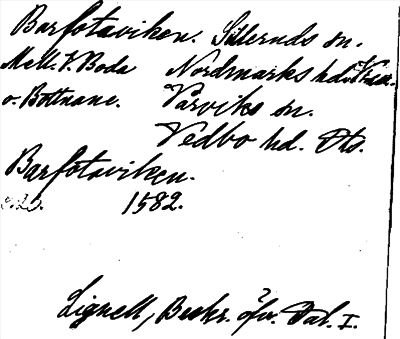 Barfotaviken. Silleruds sn.
Mell. V. Boda Nordmarks hd. Vrml.
o. Bottnane. Värviks sn.
Vedbo hd. Dls.
Barfotaviken.
1582.
Lignell, Beskr. öfv. Dal. I.